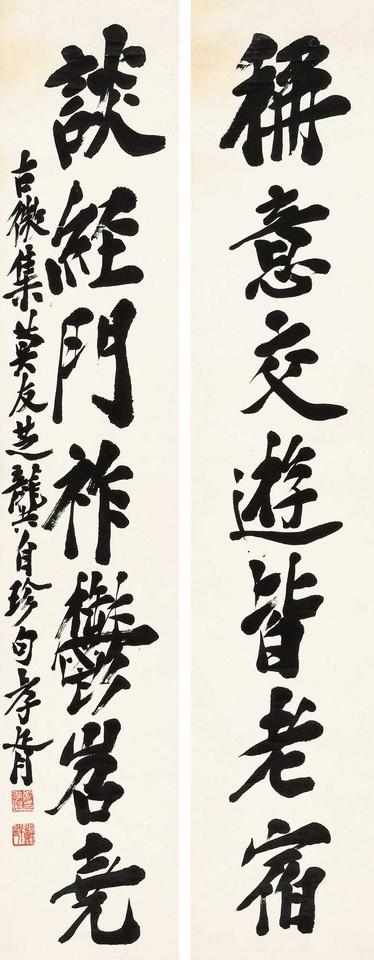 稱意交遊皆老宿
談經門祚鬱岧堯
古微集莫友芝龔自珍句孝胥